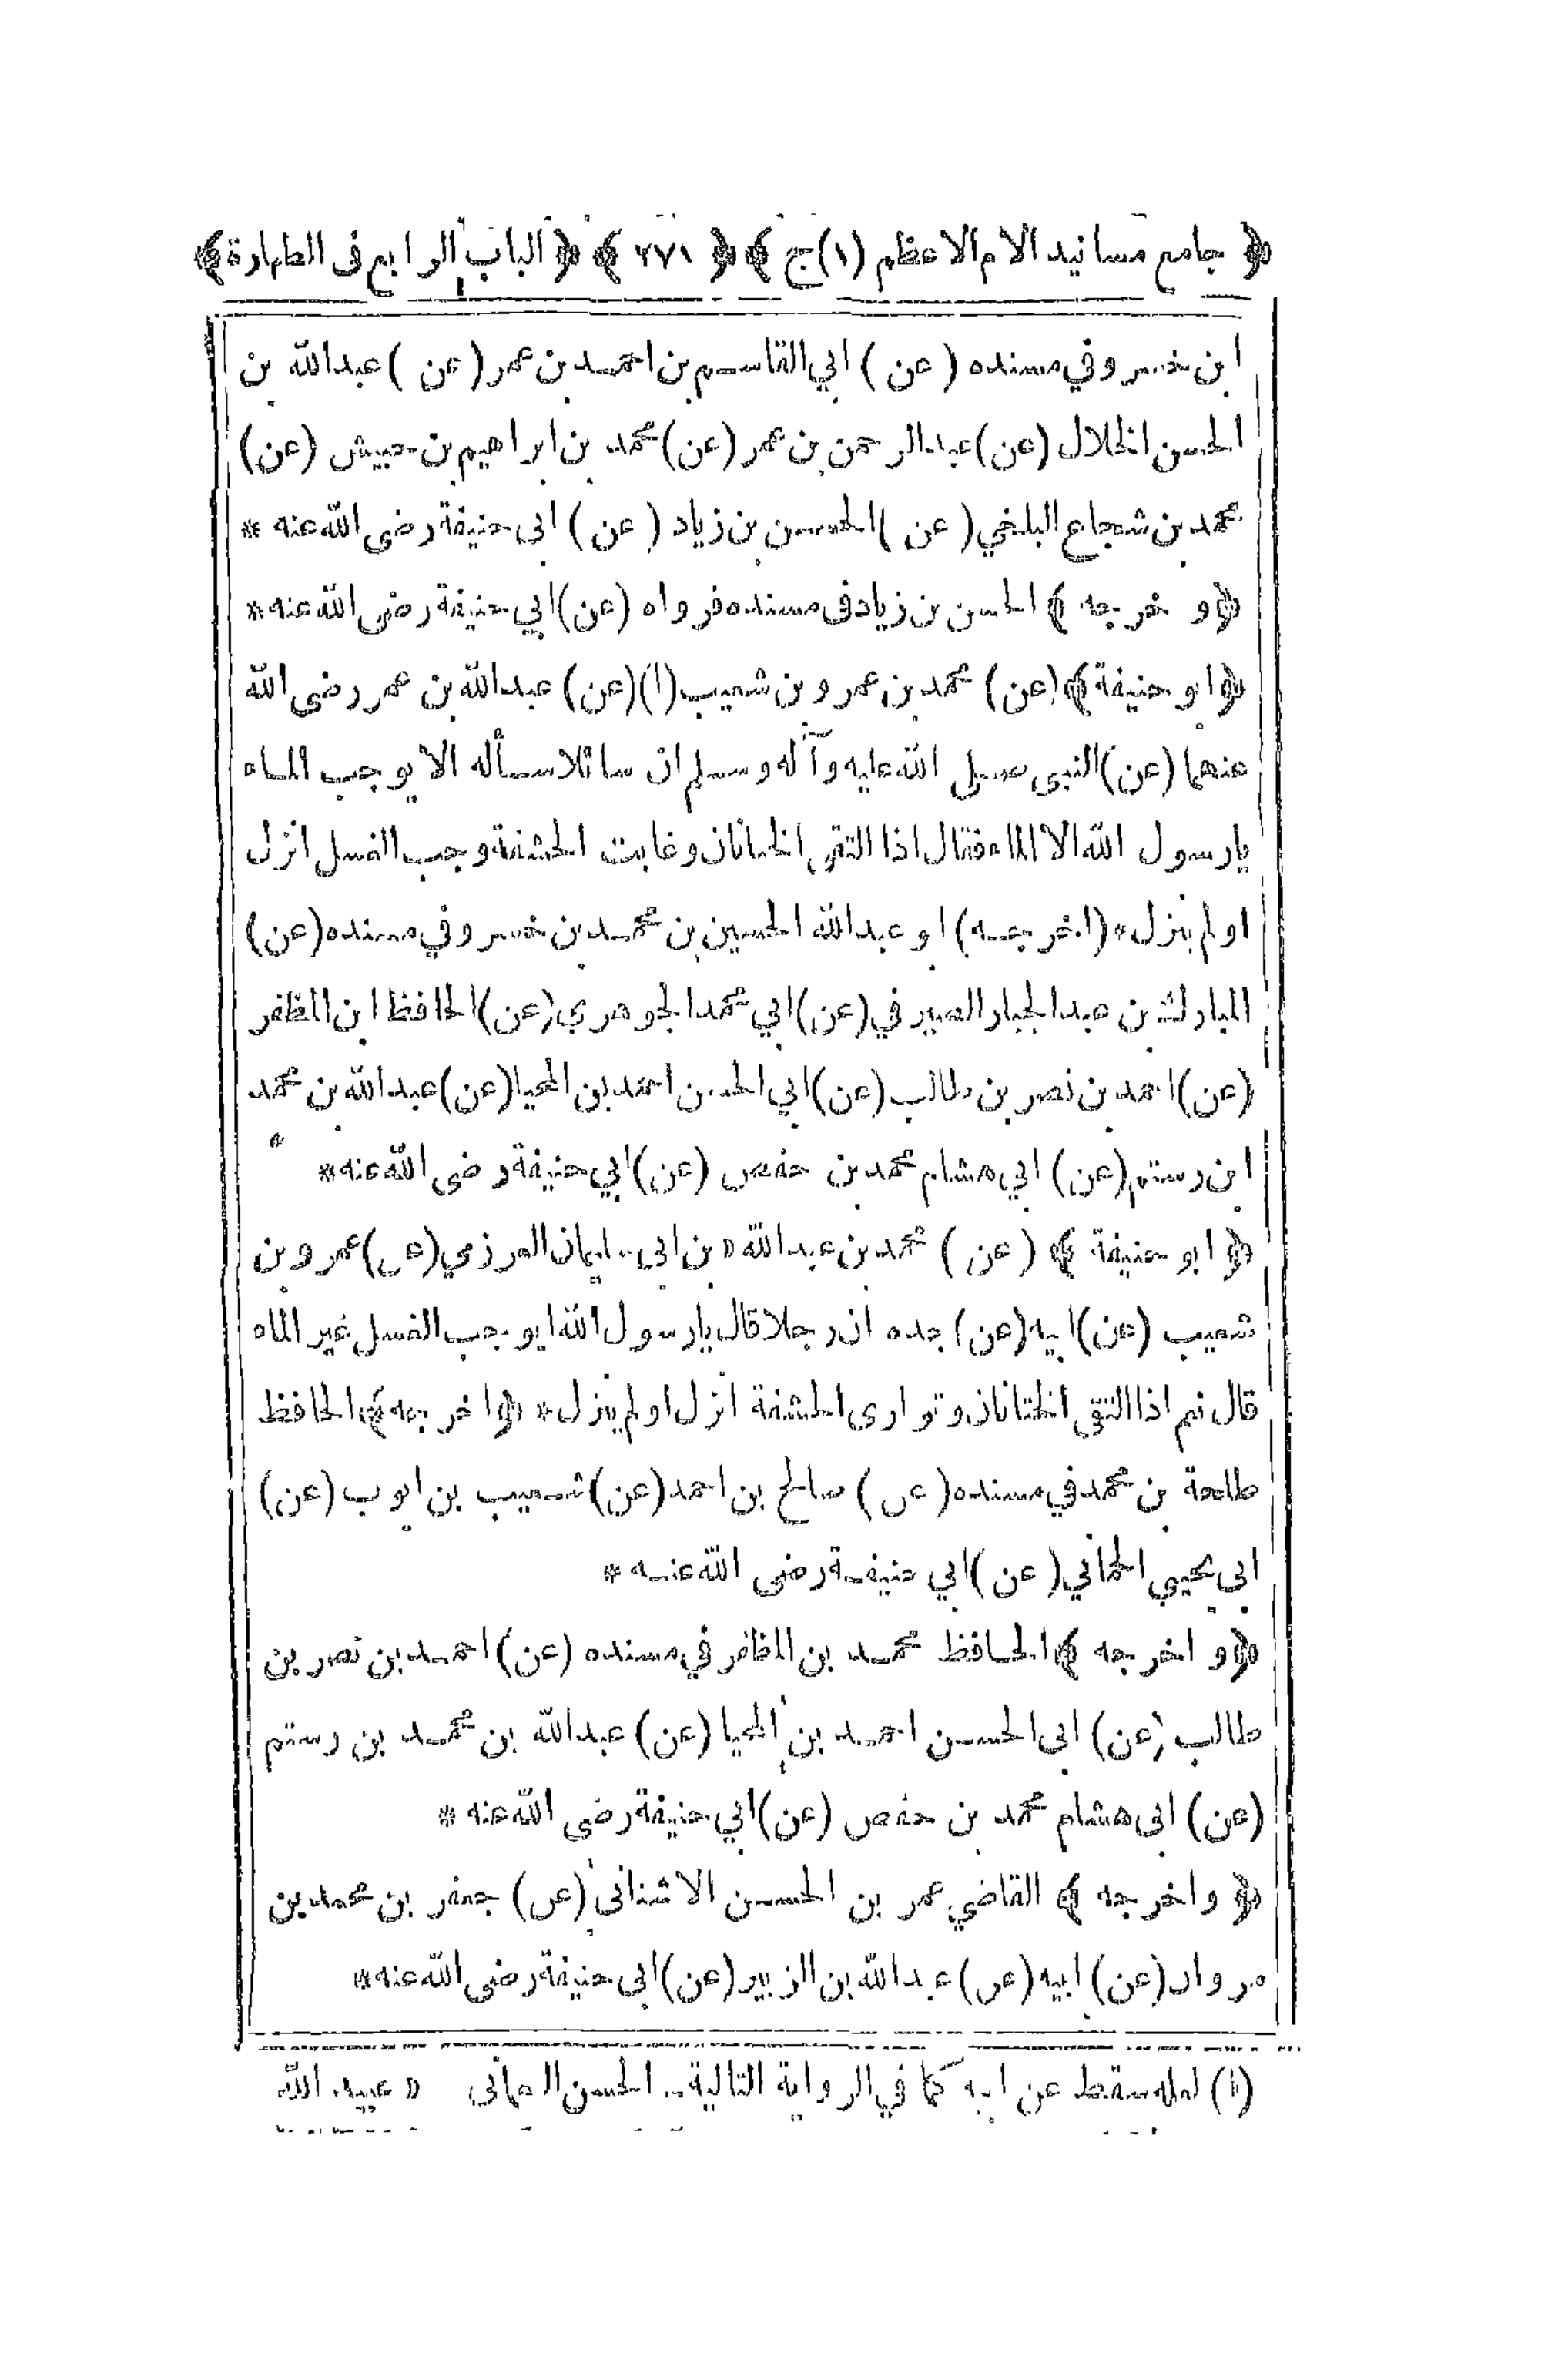 ﴿ جامع مسانيد الامام الاعظم (١) ج ﴾ ﴿ ٢٧١ ﴾ ﴿ الباب الرابع فى الطهارة ﴾
ابن خسرو في مسنده ( عن ) ابي القاسم بن احمد بن عمر ( عن ) عبدالله بن
الحسن الخلال (عن) عبدالرحمن بن عمر (عن) محمد بن ابراهيم بن حبيش (عن)
محمد بن شجاع البلخي ( عن ) الحسن بن زياد ( عن ) ابى حنيفة رضى الله عنه *
﴿ و خرجه ﴾ الحسن بن زياد فى مسنده فرواه (عن) ابي حنيفة رضى الله عنه *
﴿ ابو حنيفة ﴾ (عن) محمد بن عمرو بن شعيب (١) (عن) عبدالله بن عمر رضى الله
عنهما (عن) النبى صلى الله عليه وآله وسلم ان سائلا سأله الا يوجب الماء
يارسول الله الا الماء فقال اذا التقى الختانان وغابت الحشفة وجب الغسل انزل
اولم ينزل * (اخرجه) ابو عبدالله الحسين بن محمد بن خسرو في مسنده (عن)
المبارك بن عبدالجبار الصيرفي (عن) ابي محمد الجوهري (عن) الحافظ ابن المظفر
(عن) احمد بن نصر بن طالب (عن) ابي الحسن احمد بن المحيا (عن) عبدالله بن محمد
ابن رستم (عن) ابي هشام محمد بن حفص (عن) ابي حنيفة رضى الله عنه *
﴿ ابو حنيفة ﴾ ( عن ) محمد بن عبدالله » بن ابى سليمان العرزمي (عن) عمرو بن
شعيب (عن) ابيه (عن) جده ان رجلا قال يارسول الله ايوجب الغسل غير الماء
قال نعم اذا التقى الختانان وتوارى الحشفة انزل اولم ينزل * ﴿ اخرجه ﴾ الحافظ
طلحة بن محمد في مسنده (عن) صالح بن احمد (عن) شعيب بن ايوب (عن)
ابى يحيى الحماني ( عن ) ابي حنيفة رضى الله عنه *
﴿ و اخرجه ﴾ الحافظ محمد بن المظفر في مسنده (عن) احمد بن نصر بن
طالب (عن) ابى الحسن احمد بن المحيا (عن) عبدالله بن محمد بن رستم
(عن) ابى هشام محمد بن حفص (عن) ابي حنيفة رضى الله عنه *
﴿ واخرجه ﴾ القاضي عمر بن الحسن الاشنانى (عن) جعفر بن محمد بن
مروان (عن) ابيه (عن) عبدالله بن الزبير (عن) ابى حنيفة رضى الله عنه *
(١) لعله سقط عن ابيه كما في الرواية التالية .. الحسن النعمانى » عبيد الله